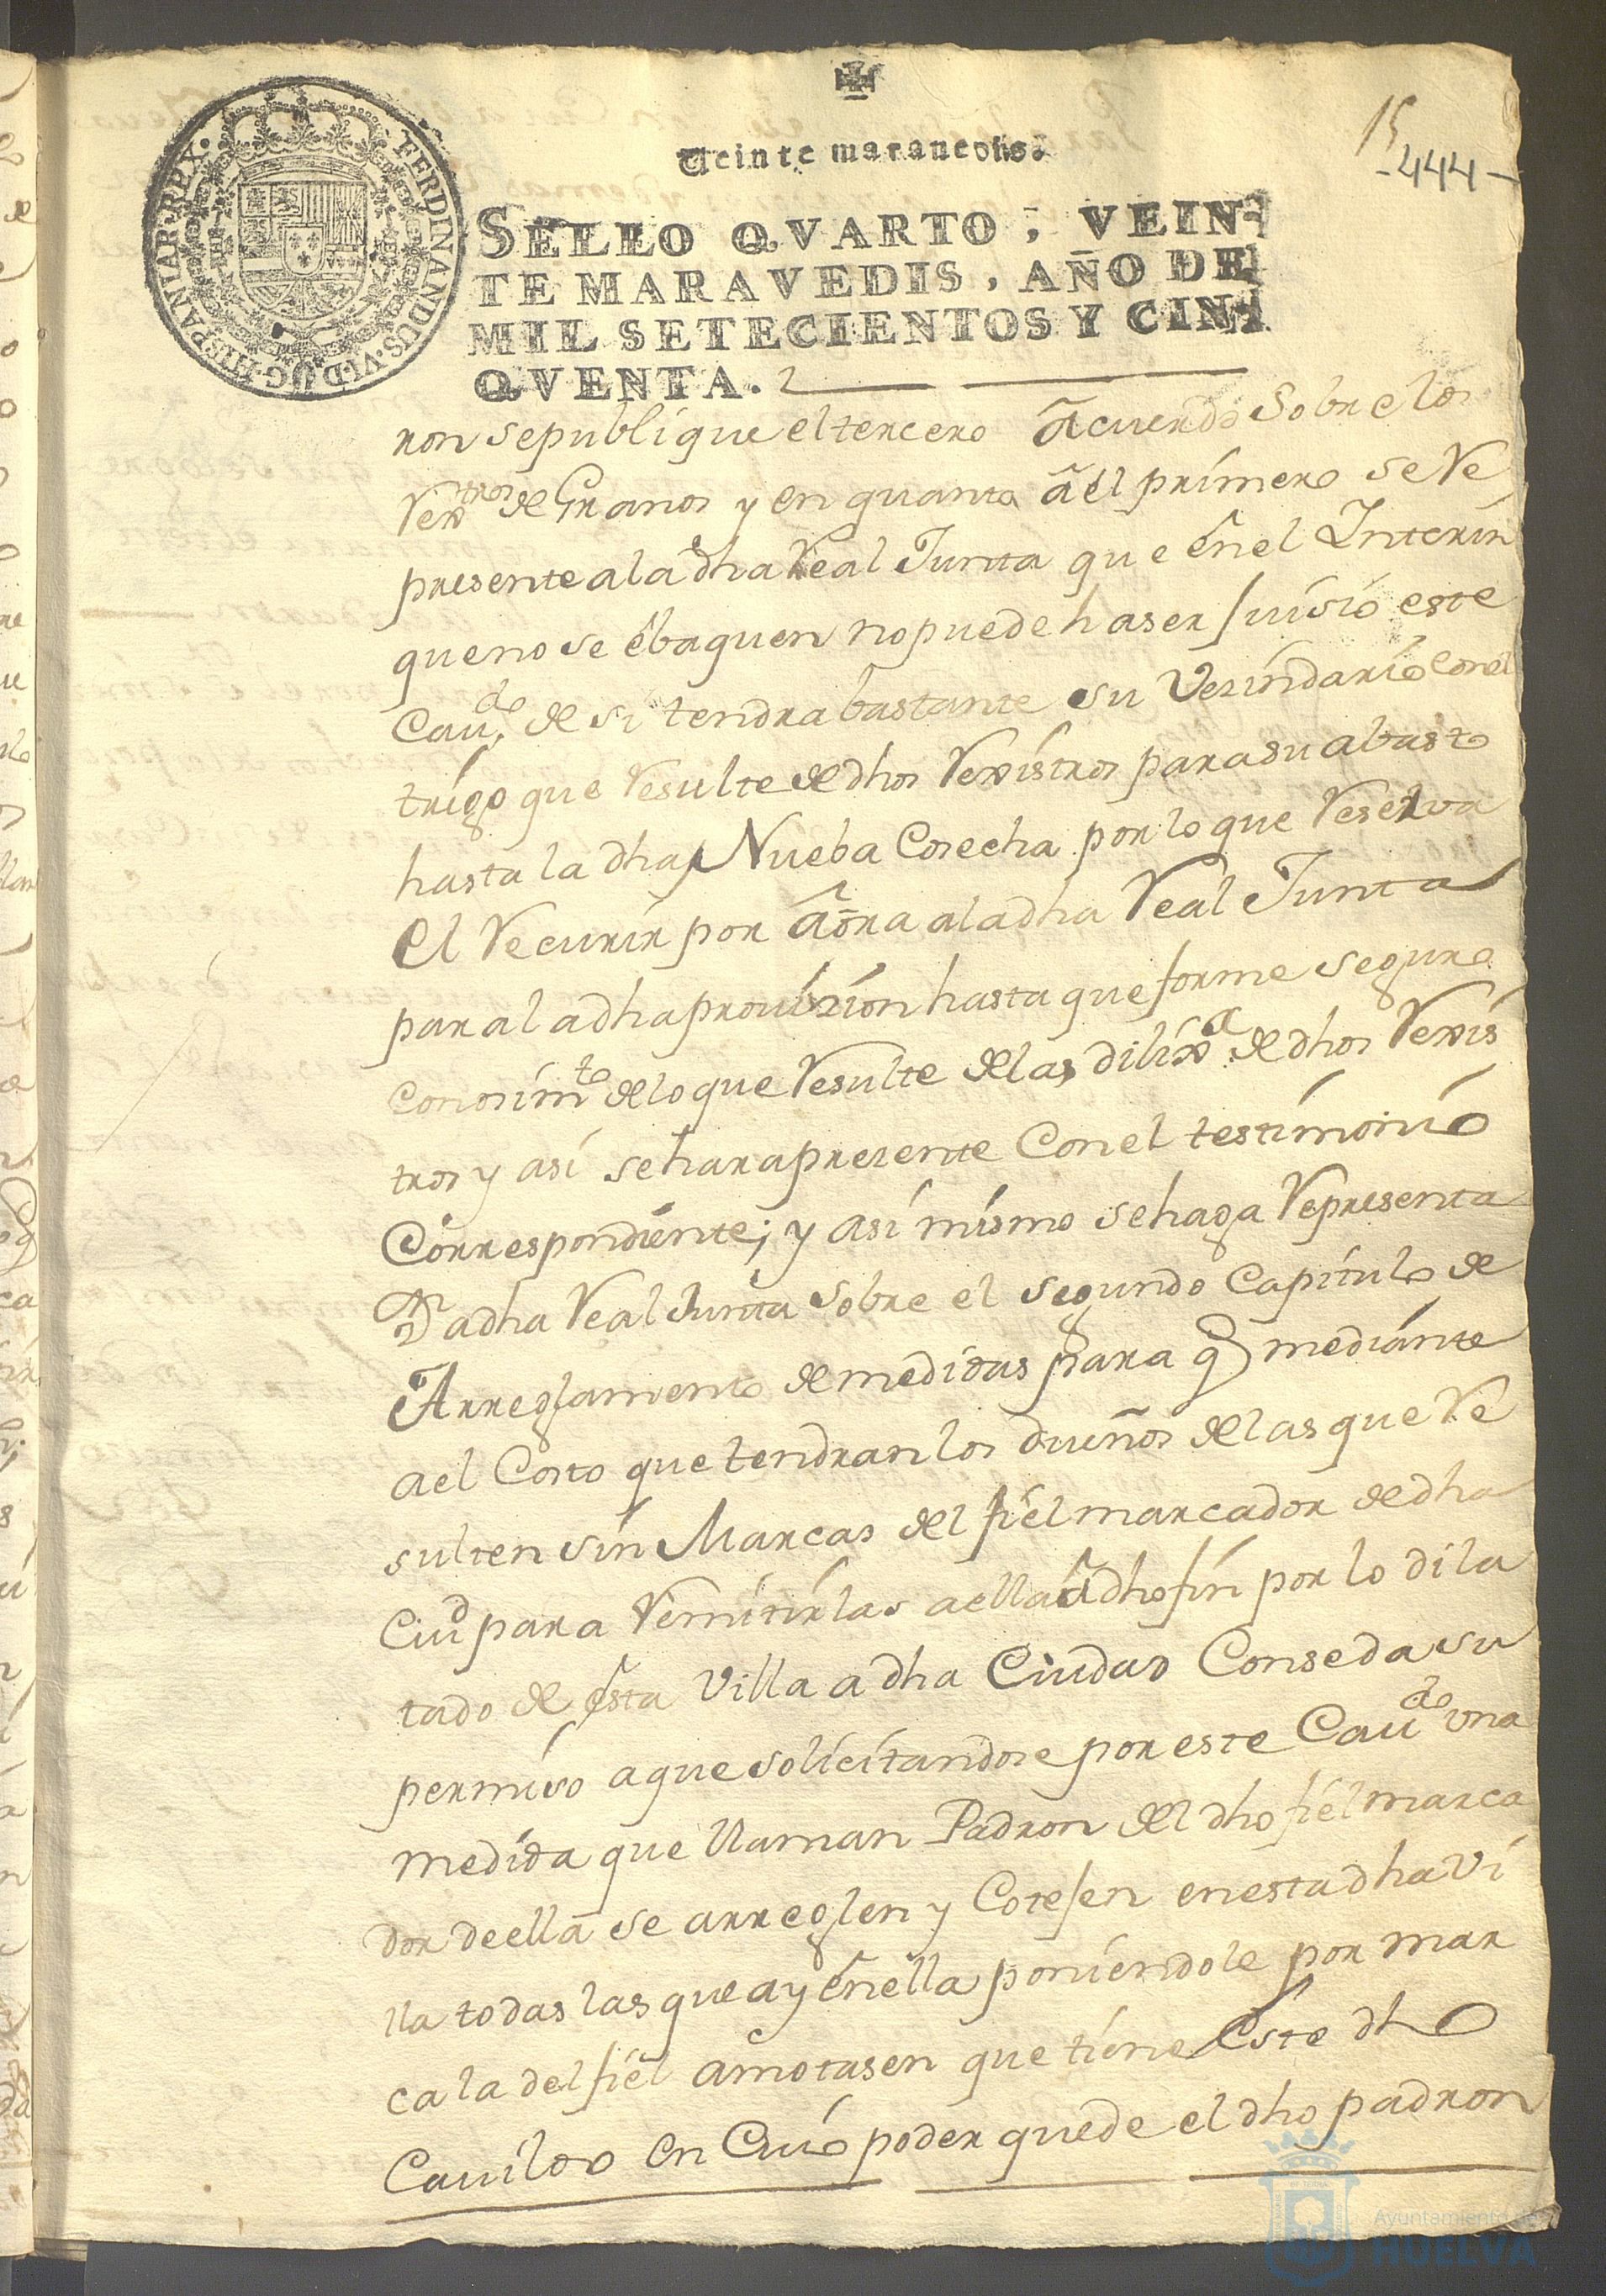 15
-444-
Veinte marauedis.
SELLO QVARTO, VEIN-
TE MARAVEDIS, AÑO DE
MIL SETECIENTOS Y CIN-
QVENTA.
FERDINANDUS.VI.D.G.HISPANIAR.REX.
ron se publique el tercero acuerdo Sobre los
Rextros de Granos y en quanto a el primero se Re
presente a la dha Real Junta que en el Interin
que no se ebaquen no puede haser juisio este
Caudo de si tendra bastante su Vesindario con el
trigo que Resulte de dhos Rexistros para su abasto
hasta la dha Nueba Cosecha por lo que Reserva
el Recurir por aora a la dha Real Junta
para la dha provixion hasta que forme seguro
conosimto de lo que Resulte de las dilixas de dhos Rexis
tros y asi se hara presente Con el testimonio
Correspondiente; y asi mismo se haga Representa
on a dha Real Junta sobre el segundo Capitulo de
Arreglamento de medidas para q mediante
a el Costo que tendran los dueños de las que Re
sulten sin Marcas del fiel marcador de dha
Ciud para Remitirlas a ella a dho fin por lo dila
tado de esta Villa a dha Ciudad Conseda su
permiso a que solicitandose por este Caudo una
medida que llaman Padron del dho fiel marca
dor de ella se arreglen y Cotejen en esta dha Vi
lla todas las que ay en ella poniendole por mar
ca la del fiel amotasen que tiene Este dho
Cauildo en Cuio poder quede el dho padron
Ayuntamiento de
HUELVA